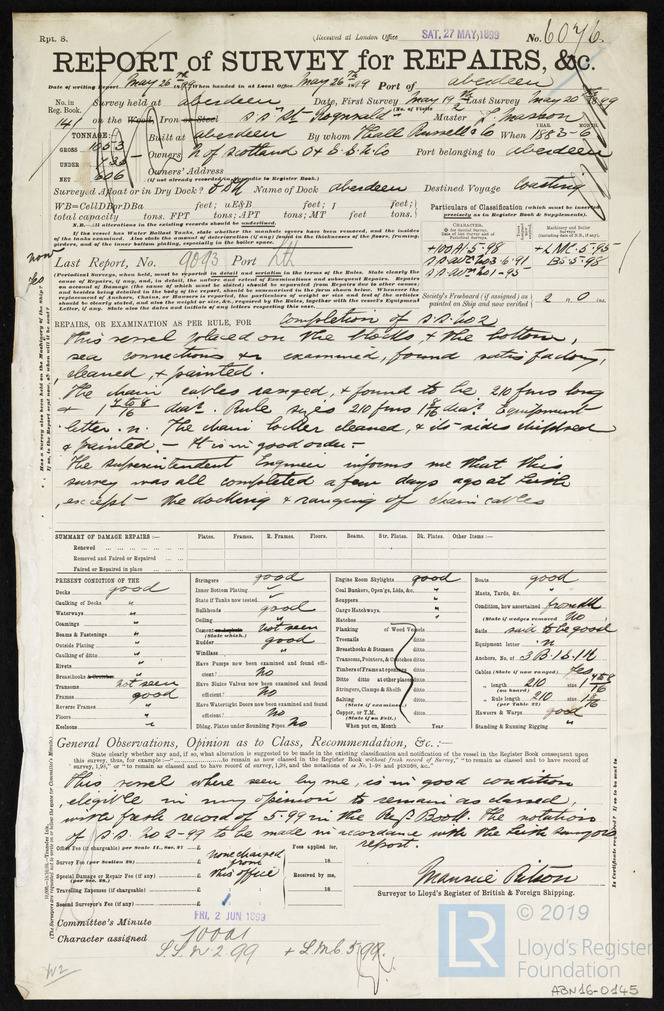 Rpt. 8.
(Received at London Office
SAT. 27 MAY, 1899
No. 6076.
REPORT of SURVEY for REPAIRS, &c.
Date of writing Report May 26th 1899 When handed in at Local Office May 26th 1899 Port of Aberdeen
No. in Reg. Book. Survey held at Aberdeen Date, First Survey May 19th Last Survey May 20th 1899
(No. of Visits 2)
141 on the Wood, Iron or Steel S S "St. Rognvald" Master
TONNAGE: Built at Aberdeen By whom Hall Russell & Co When 1883-6
YEAR. MONTH.
GROSS 1053
UNDER
NET 606
Owners N of Scotland O & S. S. N. Co Port belonging to Aberdeen
Owners' Address
(if not already recorded in Appendix to Register Book.)
Surveyed Afloat or in Dry Dock? Name of Dock Aberdeen Destined Voyage Coasting
WB=CellDBorDBa feet; uE&B feet; f feet;
total capacity tons. FPT tons; APT tons; MT feet tons.
Particulars of Classification (which must be inserted precisely as in Register Book & Supplements).
N.B.—All alterations in the existing records should be underlined.
+100A1-5-98
+LMC-5-95
SS Abn No3-6-91
BS-5-98
SS Abn No1-95
Last Report, No. 9093 Port Lth
Society's Freeboard (if assigned) as painted on Ship and now verified 2 ft 0 ins.
REPAIRS, OR EXAMINATION AS PER RULE, FOR Completion of S.S. No 2
This vessel placed on the blocks, & the bottom,
sea connections &c examined, found satisfactory,
cleaned, & painted.
The chain cables ranged, & found to be 210 fms long
& 1 7 to 8/16 diar. Rule sizes 210 fms 1 8/16 diar. Equipment
letter n. The chain locker cleaned, & its sides chipped
& painted. — It is in good order. —
The Superintendent Engineer informs me that this
survey was all completed a few days ago at Leith
except — the docking & ranging of chain cables
SUMMARY OF DAMAGE REPAIRS:— Plates. Frames. R. Frames. Floors. Beams. Str. Plates. Dk. Plates. Other Items:—
Renewed
Removed and Faired or Repaired
Faired or Repaired in place
PRESENT CONDITION OF THE
Decks good
Caulking of Decks "
Waterways "
Coamings "
Beams & Fastenings "
Outside Plating "
Caulking of ditto "
Rivets "
Breasthooks "
Transoms not seen
Frames good
Reverse Frames "
Floors "
Keelsons "
Stringers good
Inner Bottom Plating
State if Tanks now tested
Bulkheads good
Ceiling "
Cement not seen
(State which.)
Rudder good
Windlass "
Have Pumps now been examined and found efficient? No
Have Sluice Valves now been examined and found efficient? No
Have Watertight Doors now been examined and found efficient? No
Dblng. Plates under Sounding Pipes No
Engine Room Skylights good
Coal Bunkers, Open'gs, Lids, &c. "
Scuppers "
Cargo Hatchways "
Hatches "
Planking of Wood Vessels
Treenails ditto
Breasthooks & Stemson ditto
Transoms, Pointers, & Crutches ditto
Timbers of Frame at openings ditto
Ditto ditto at other places ditto
Stringers, Clamps & Shelfs ditto
Salting ditto
(State if examined.)
Copper, or Y.M. ditto
(State if on Felt.)
When put on, Month Year
Boats good
Masts, Yards, &c. "
Condition, how ascertained from dk
(State if wedges removed) No
Sails said to be good
Equipment letter n
Anchors, No. of 3 B. 1 S. 1 K
Cables (State if now ranged) Yes
" length 210 size 1 7 to 8/16
(on board)
" Rule length 210 size 1 8/16
(per Table 22)
Hawsers & Warps good
Standing & Running Rigging "
General Observations, Opinion as to Class, Recommendation, &c. :—
This vessel where seen by me, is in good condition
eligible in my opinion to remain as classed
with fresh record of 5-99 in the Regr. Book. The notation
of S.S. No 2-99 to be made in accordance with the Leith Surveyors
report.
Office Fee (if chargeable) per Scale II., Sec. 27 £
Survey Fee (per Section 28) £
Special Damage or Repair Fee (if any) £
(per Sec. 28.)
Travelling Expenses (if chargeable) £
Second Surveyor's Fee (if any) £
None charged from this office
Fees applied for,
Received by me,
Surveyor to Lloyd's Register of British & Foreign Shipping.
FRI. 2 JUN 1899
Committee's Minute
Character assigned 100A1
S.S. No 2. 99 + L.M.C. 5.99.
© 2019
LR
Lloyd's Register
Foundation
ABN16-0145